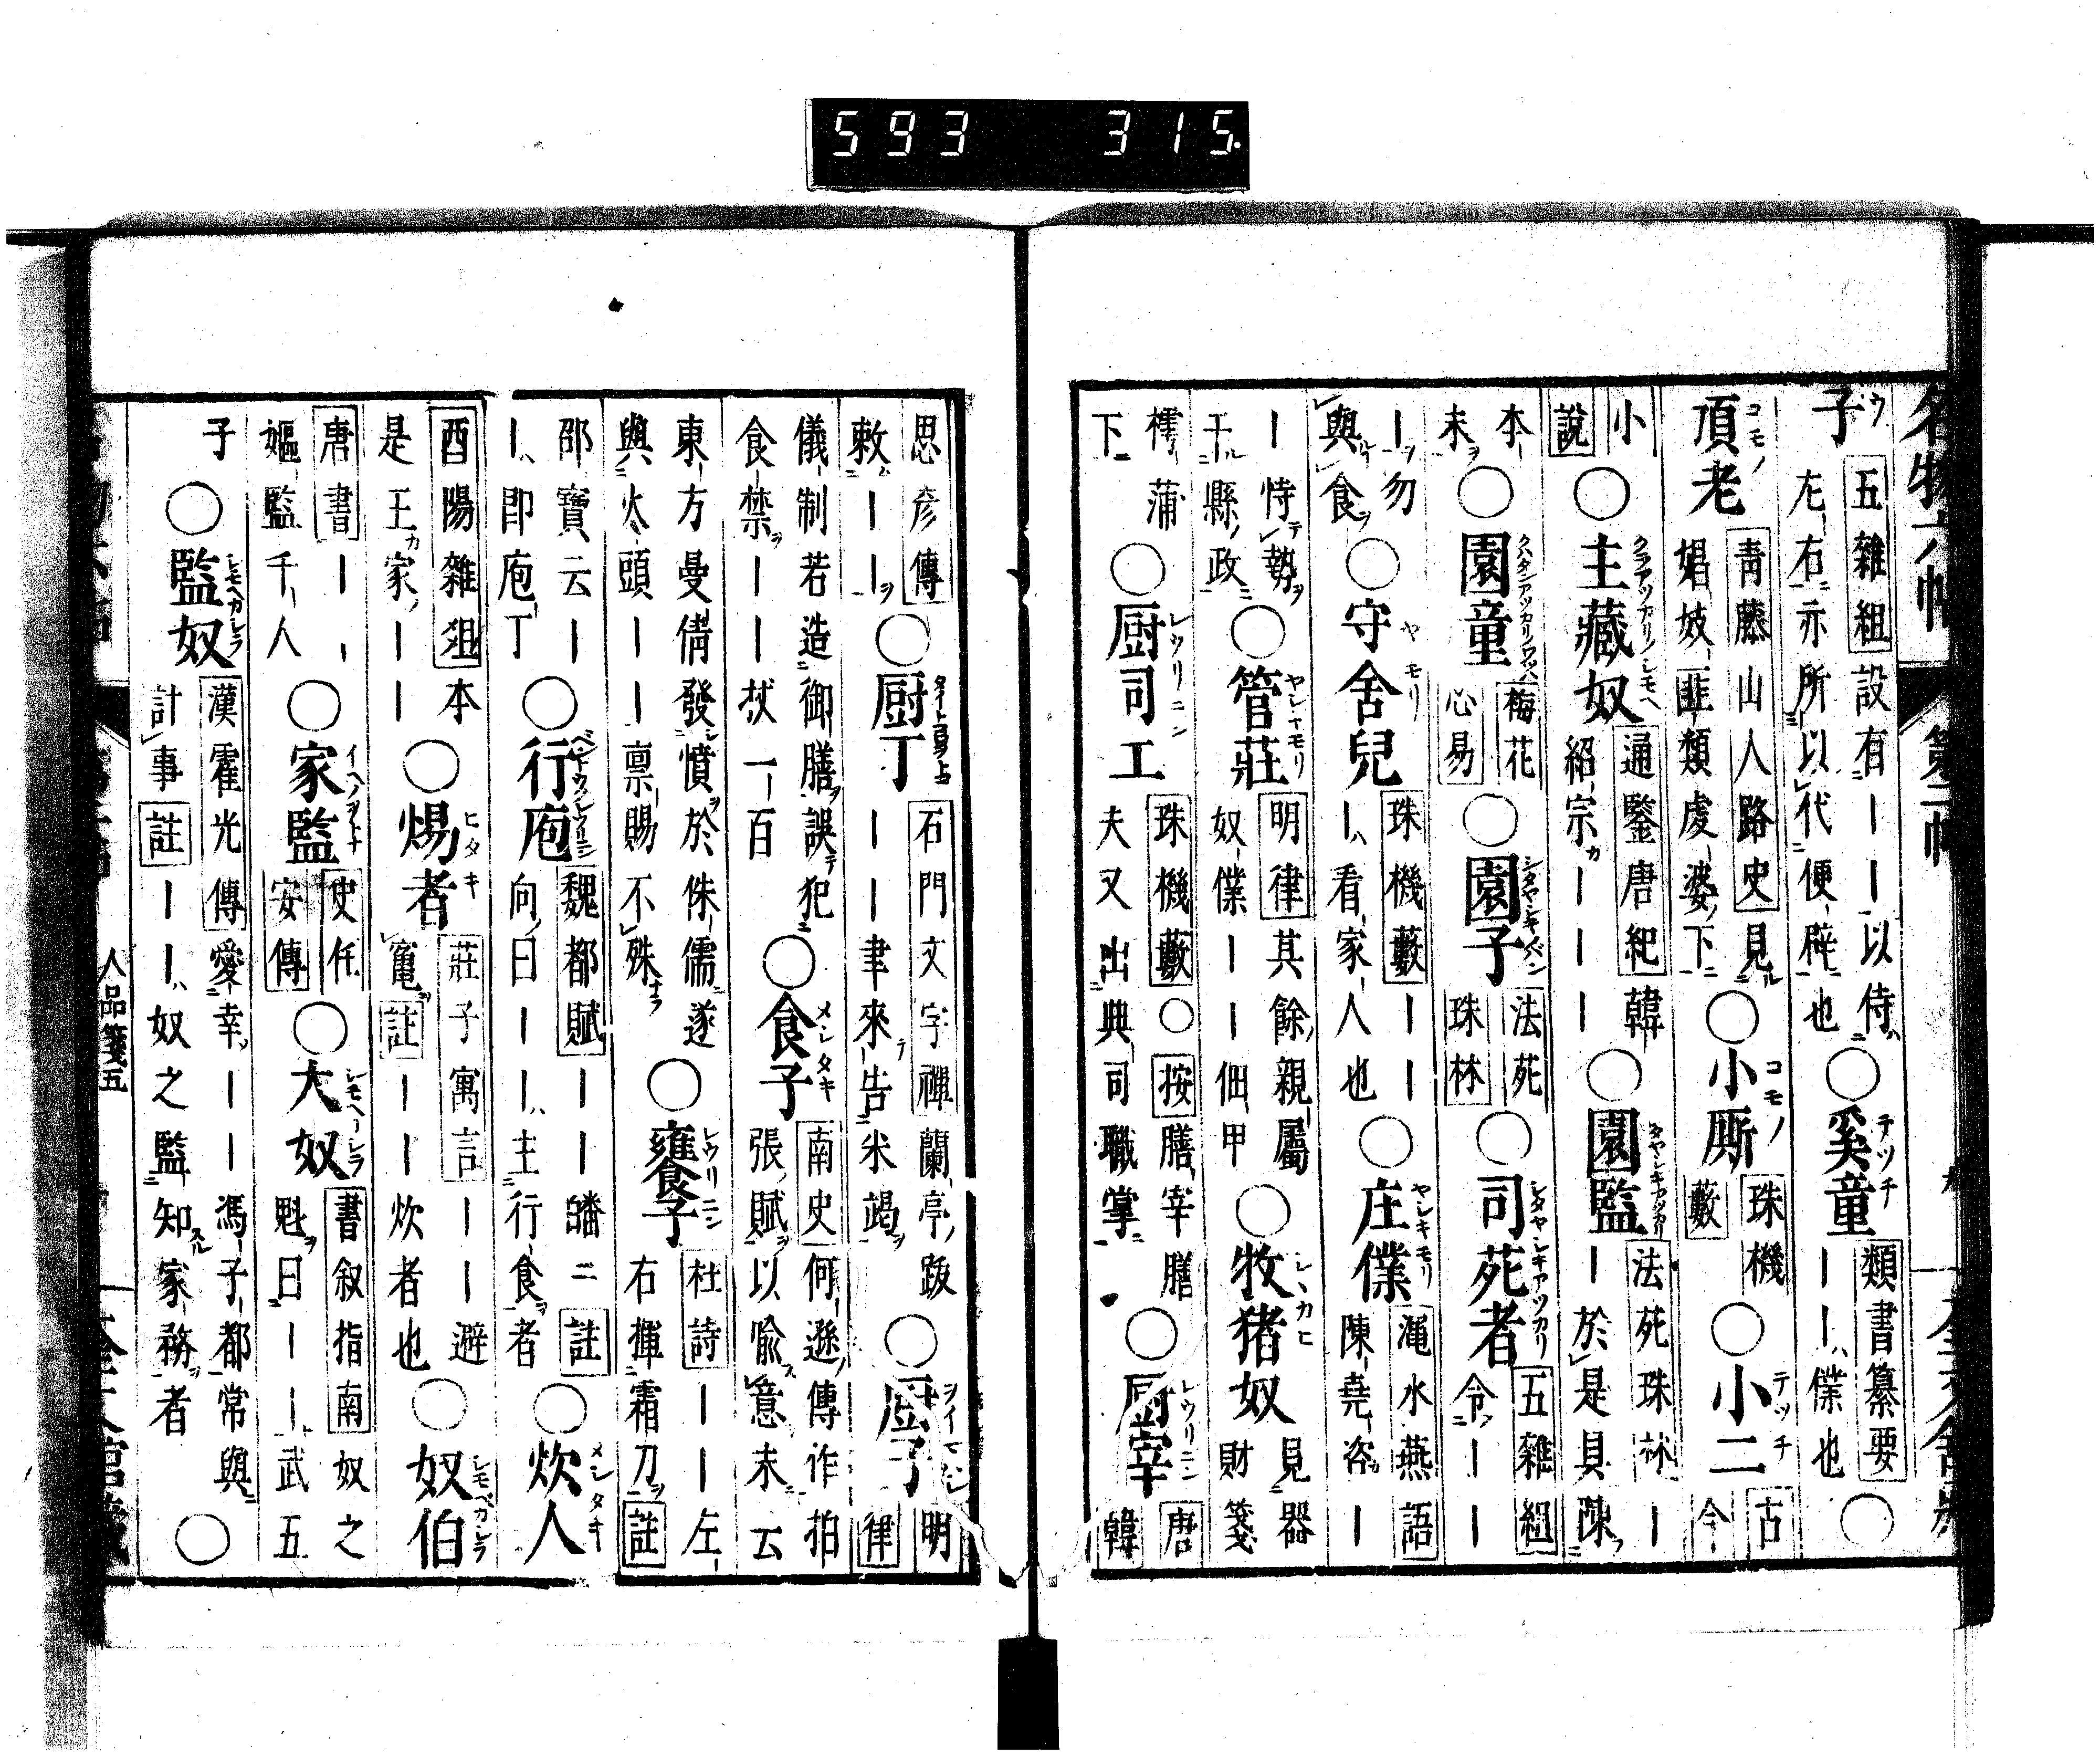 593 315.
子 五雜組 設有――以侍
左右亦所以代便辟也 ○奚童 類書纂要
――僕也 ○
頂老 青藤山人路史 見
娼妓韭類虔婆下 ○小厮 珠機
藪 ○小二 古
今
小
說 ○主藏奴 通鑒唐紀 韓
紹宗――― ○園監 法苑珠林 ―
―於是具陳
本
末 ○園童 梅花
心易 ○園子 法苑
珠林 ○司苑者 五雜組
令――
―勿
與食 ○守舍兒 珠機藪 ――
―看家人也 ○庄僕 澠水燕語
陳堯咨―
―恃勢
干縣政 ○管莊 明律 其餘親屬
奴僕――佃甲 ○牧猪奴 見器
財箋
樗蒲
下 ○厨司工 珠機藪 ○按膳宰膳
夫又出典司職掌 ○厨宰 唐
韓
思彦傳
敕――― ○厨丁 石門文字禪 蘭亭跋
―――聿來告米竭 ○厨子 明
律
儀制若造御膳誤犯
食禁――杖一百 ○食子 南史 何遜傳作拍
張賦以喻意末云
東方曼倩發憤於侏儒遂
與火頭――稟賜不殊 ○饔子 杜詩 ――左
右揮霜刀 註
邵寶云―
―即庖丁 ○行庖 魏都賦 ――皤々 註
向曰――主行食者 ○炊人
酉陽雜俎 本
是王家―― ○煬者 莊子寓言 ――避
竈 註 ――炊者也 ○奴伯
唐書 ――
嫗監千人 ○家監 史任
安傳 ○大奴 書叙指南 奴之
魁曰――武五
子 ○監奴 漢霍光傳 愛幸――馮子都常與
計事 註 ――奴之監知家務者 ○
人品箋五